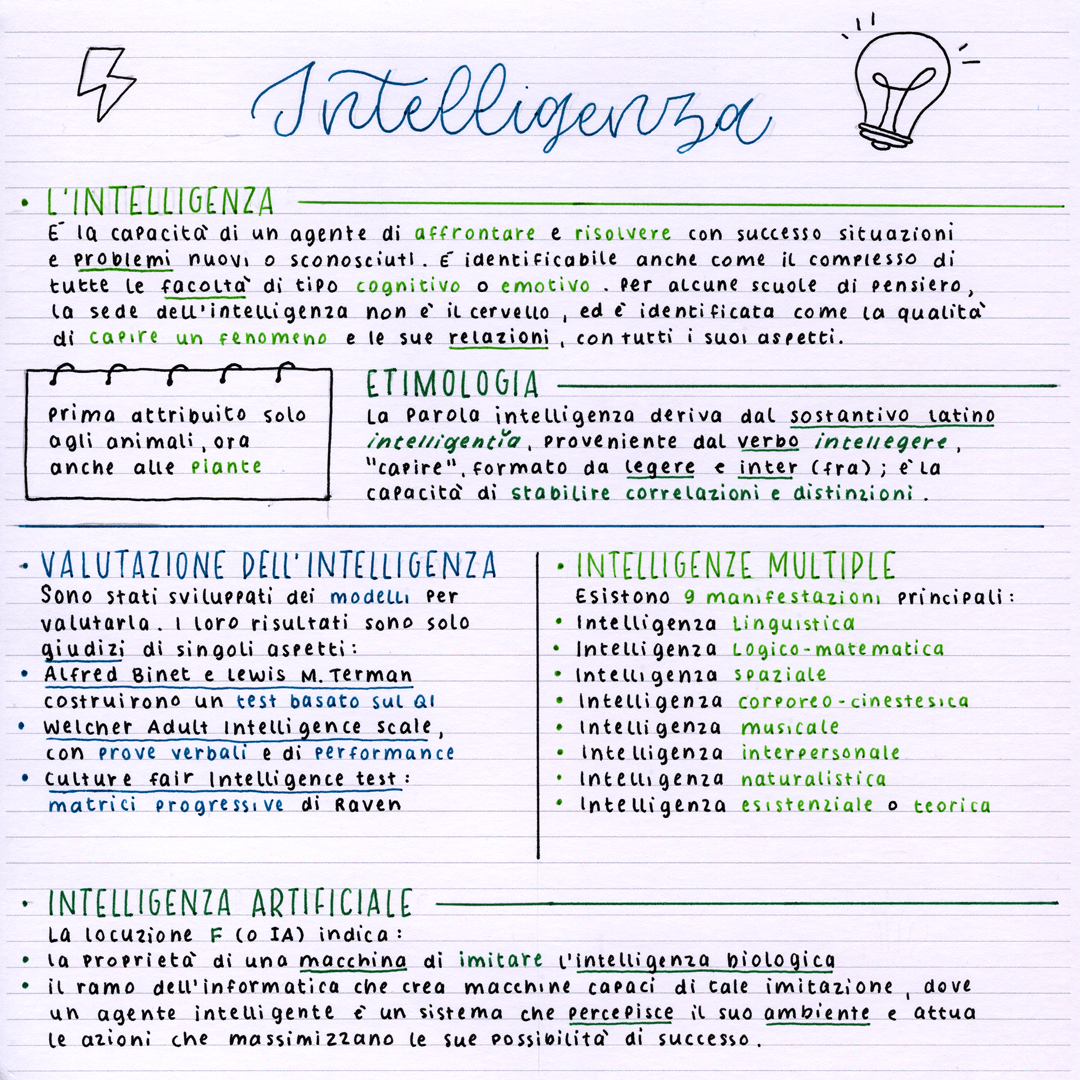 Intelligenza
• L'INTELLIGENZA
È la capacità di un agente di affrontare e risolvere con successo situazioni
e problemi nuovi o sconosciuti. È identificabile anche come il complesso di
tutte le facoltà di tipo cognitivo o emotivo. Per alcune scuole di pensiero,
la sede dell'intelligenza non è il cervello, ed è identificata come la qualità
di capire un fenomeno e le sue relazioni, con tutti i suoi aspetti.
Prima attribuito solo
agli animali, ora
anche alle piante
ETIMOLOGIA
La parola intelligenza deriva dal sostantivo latino
intelligentĭa, proveniente dal verbo intellegere,
"capire", formato da legere e inter (fra); è la
capacità di stabilire correlazioni e distinzioni.
• VALUTAZIONE DELL'INTELLIGENZA
Sono stati sviluppati dei modelli per
valutarla. I loro risultati sono solo
giudizi di singoli aspetti:
• Alfred Binet e Lewis M. Terman
costruirono un test basato sul QI
• Welcher Adult Intelligence scale,
con prove verbali e di performance
• Culture fair Intelligence test:
matrici progressive di Raven
• INTELLIGENZE MULTIPLE
Esistono 9 manifestazioni principali:
• Intelligenza Linguistica
• Intelligenza Logico-matematica
• Intelligenza spaziale
• Intelligenza corporeo-cinestesica
• Intelligenza musicale
• Intelligenza interpersonale
• Intelligenza naturalistica
• Intelligenza esistenziale o teorica
• INTELLIGENZA ARTIFICIALE
La locuzione F (o IA) indica:
• la proprietà di una macchina di imitare l'intelligenza biologica
• il ramo dell'informatica che crea macchine capaci di tale imitazione, dove
un agente intelligente è un sistema che percepisce il suo ambiente e attua
le azioni che massimizzano le sue possibilità di successo.